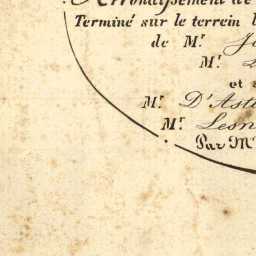 Arrondissement de
Terminé sur le terrein l
de Mr. J
Mr.
et s
Mr. D'Ast
Mr. Lesn
Par M